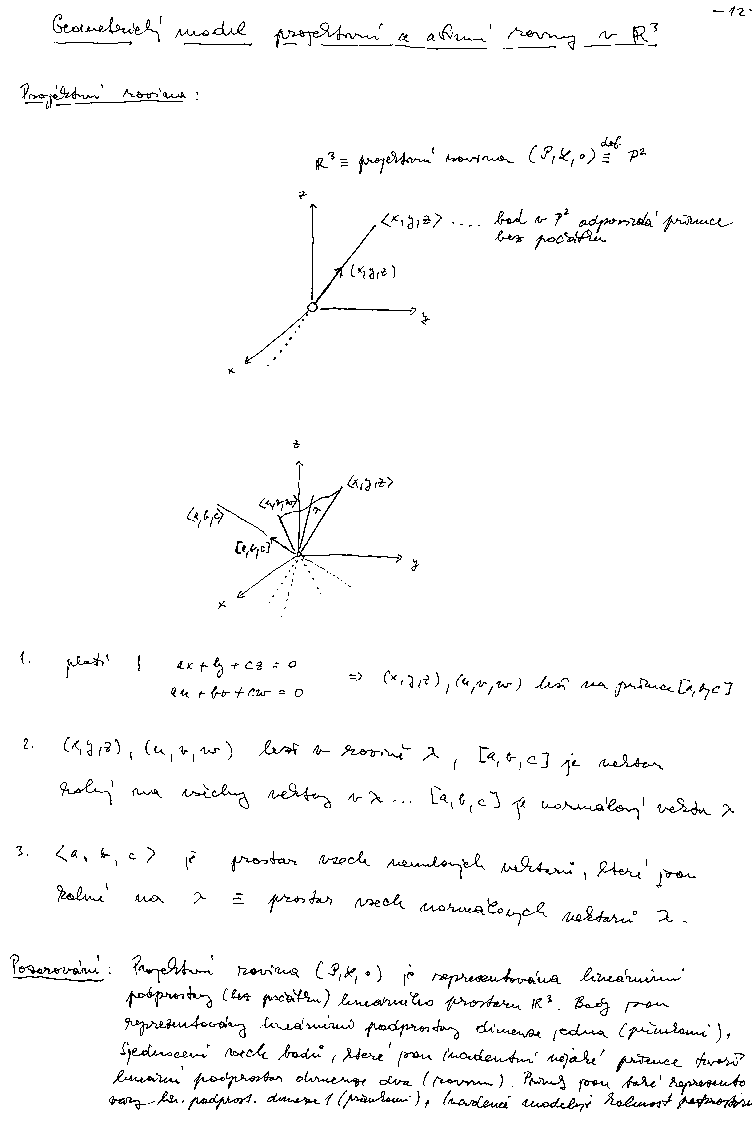 -12-
Geometrický model projektivní a afinní roviny v ℝ³
Projektivní rovina:
ℝ³ ≡ projektivní rovina (P, L, ∘) def≡ P²
z
⟨x,y,z⟩ .... bod v P² odpovídá přímce
bez počátku
(x,y,z)
y
x
z
⟨x,y,z⟩
⟨u,v,w⟩
λ
⟨a,b,c⟩
[a,b,c]
y
x
1. platí ax + by + cz = 0
au + bv + cw = 0
⇒ (x,y,z), (u,v,w) leží na přímce [a,b,c]
2. (x,y,z), (u,v,w) leží v rovině λ, [a,b,c] je vektor
kolmý na všechny vektory v λ ... [a,b,c] je normálový vektor λ
3. ⟨a, b, c⟩ je prostor všech nenulových vektorů, které jsou
kolmé na λ ≡ prostor všech normálových vektorů λ.
Pozorování: Projektivní rovina (P, L, ∘) je reprezentována lineárními
podprostory (bez počátku) lineárního prostoru ℝ³. Body jsou
reprezentovány lineárními podprostory dimenze jedna (přímkami).
Sjednocení všech bodů, které jsou incidentní nějaké přímce tvoří
lineární podprostor dimenze dva (rovinu). Přímky jsou také reprezento
vány lin. podprost. dimenze 1 (přímkami), incidenci modeluje kolmost